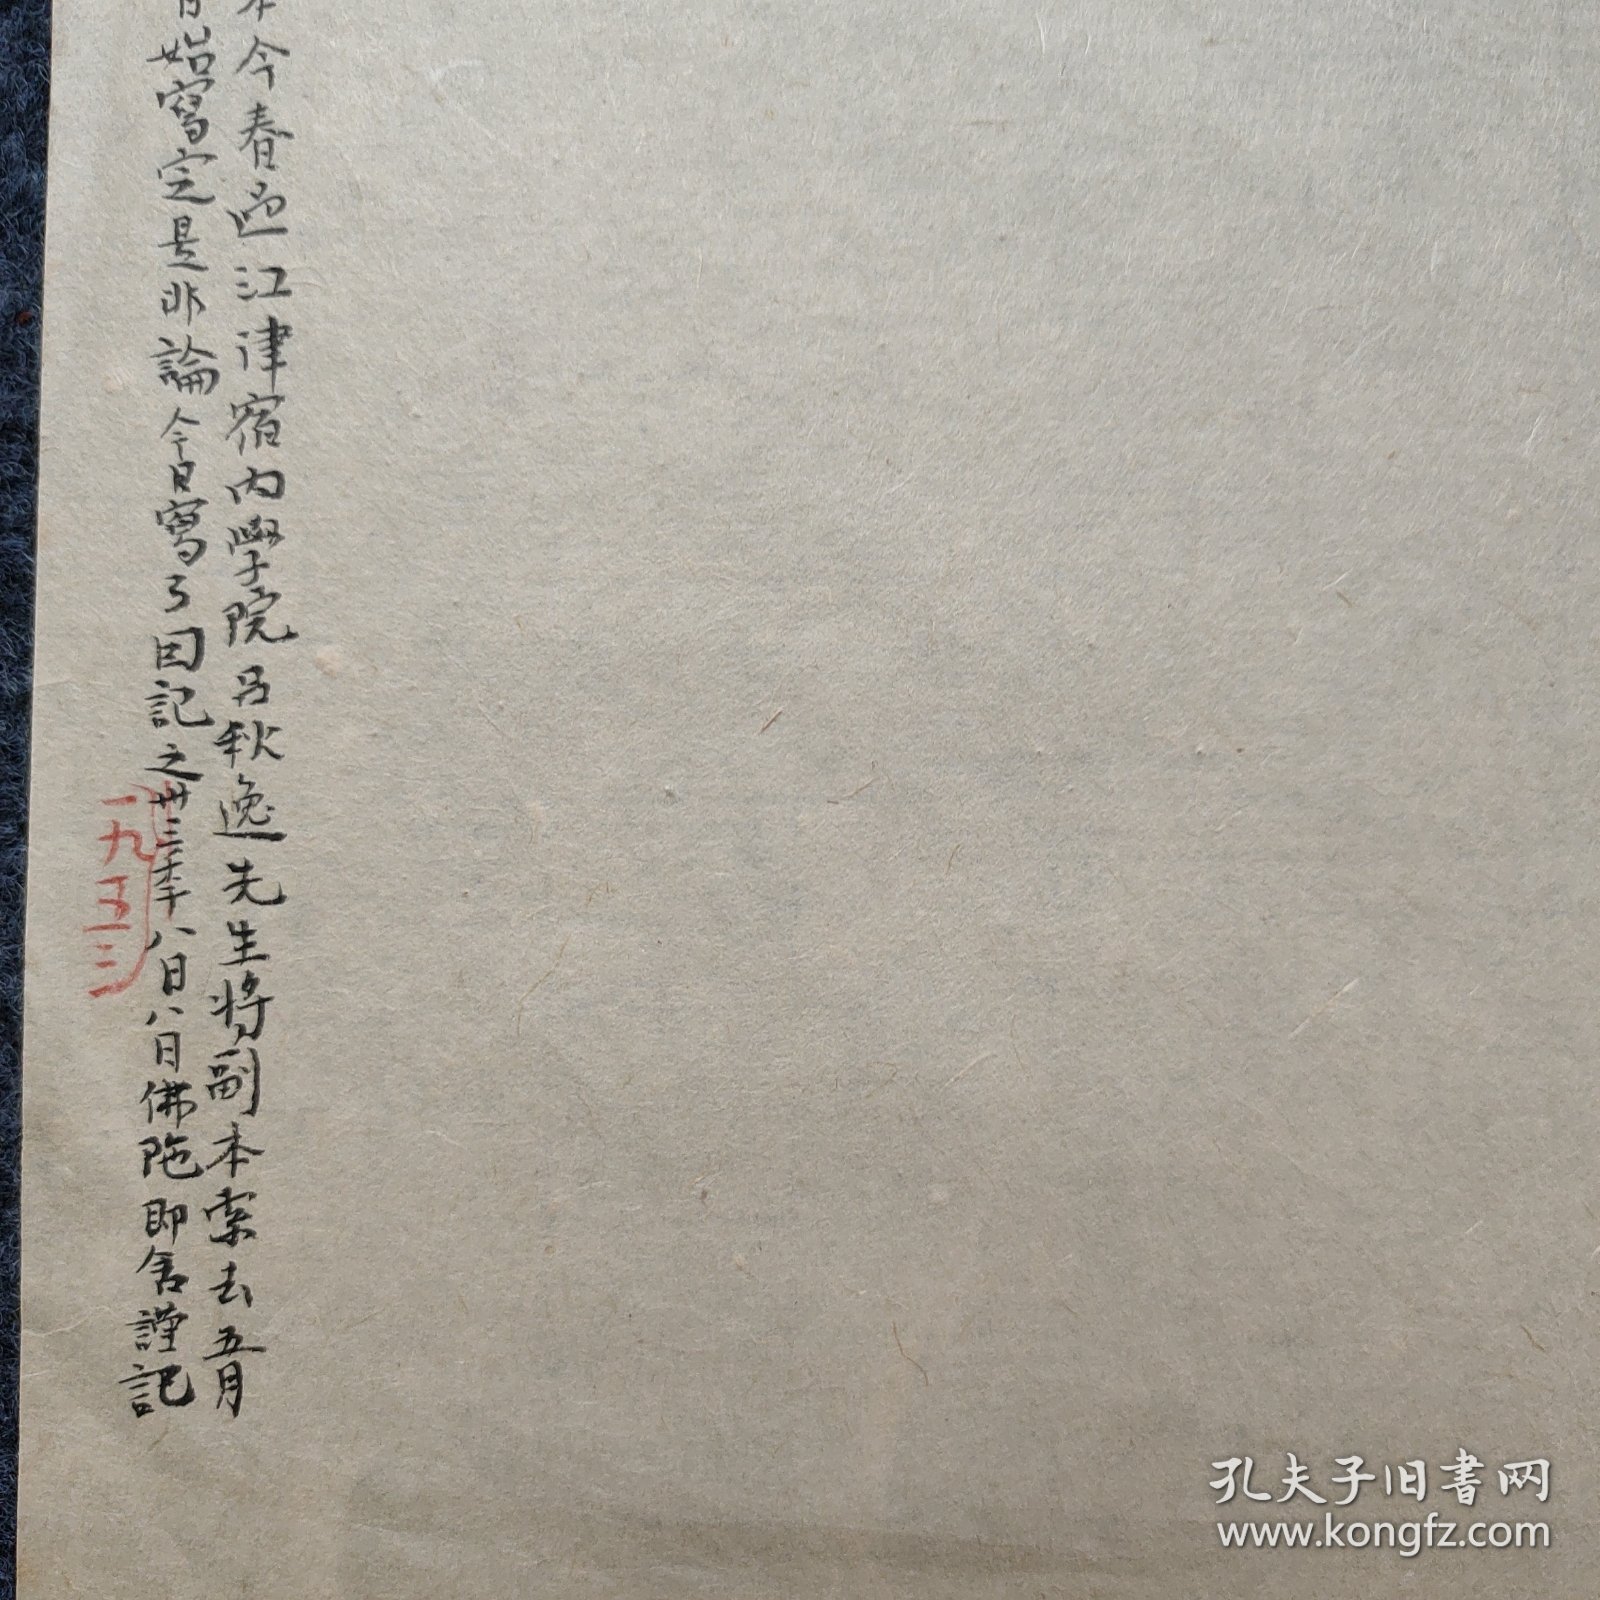 本今春過江津宿內學院呂秋逸先生將副本索去五月
始寫定是非論今日寫了因記之卅三年八日八日佛陀即舍謹記
一九五三
孔夫子旧书网
www.kongfz.com